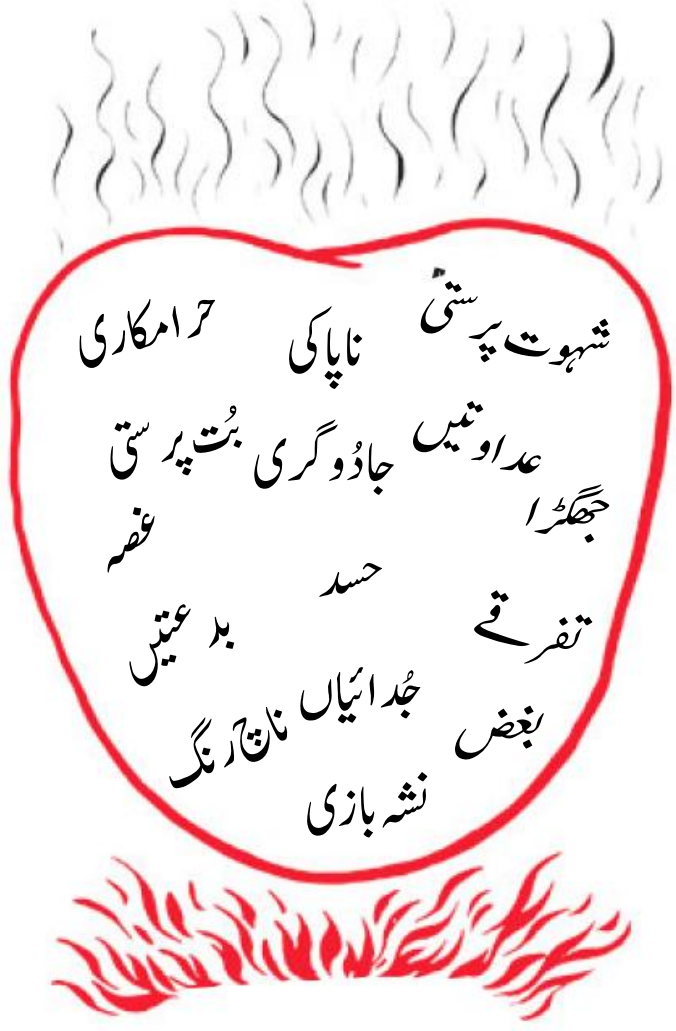 شہوت پرستی
ناپاکی
حرامکاری
عداوتیں
جادُوگری
بُت پرستی
جھگڑا
غصہ
حسد
تفرقے
بدعتیں
جُدائیاں
بغض
ناچ رنگ
نشہ بازی